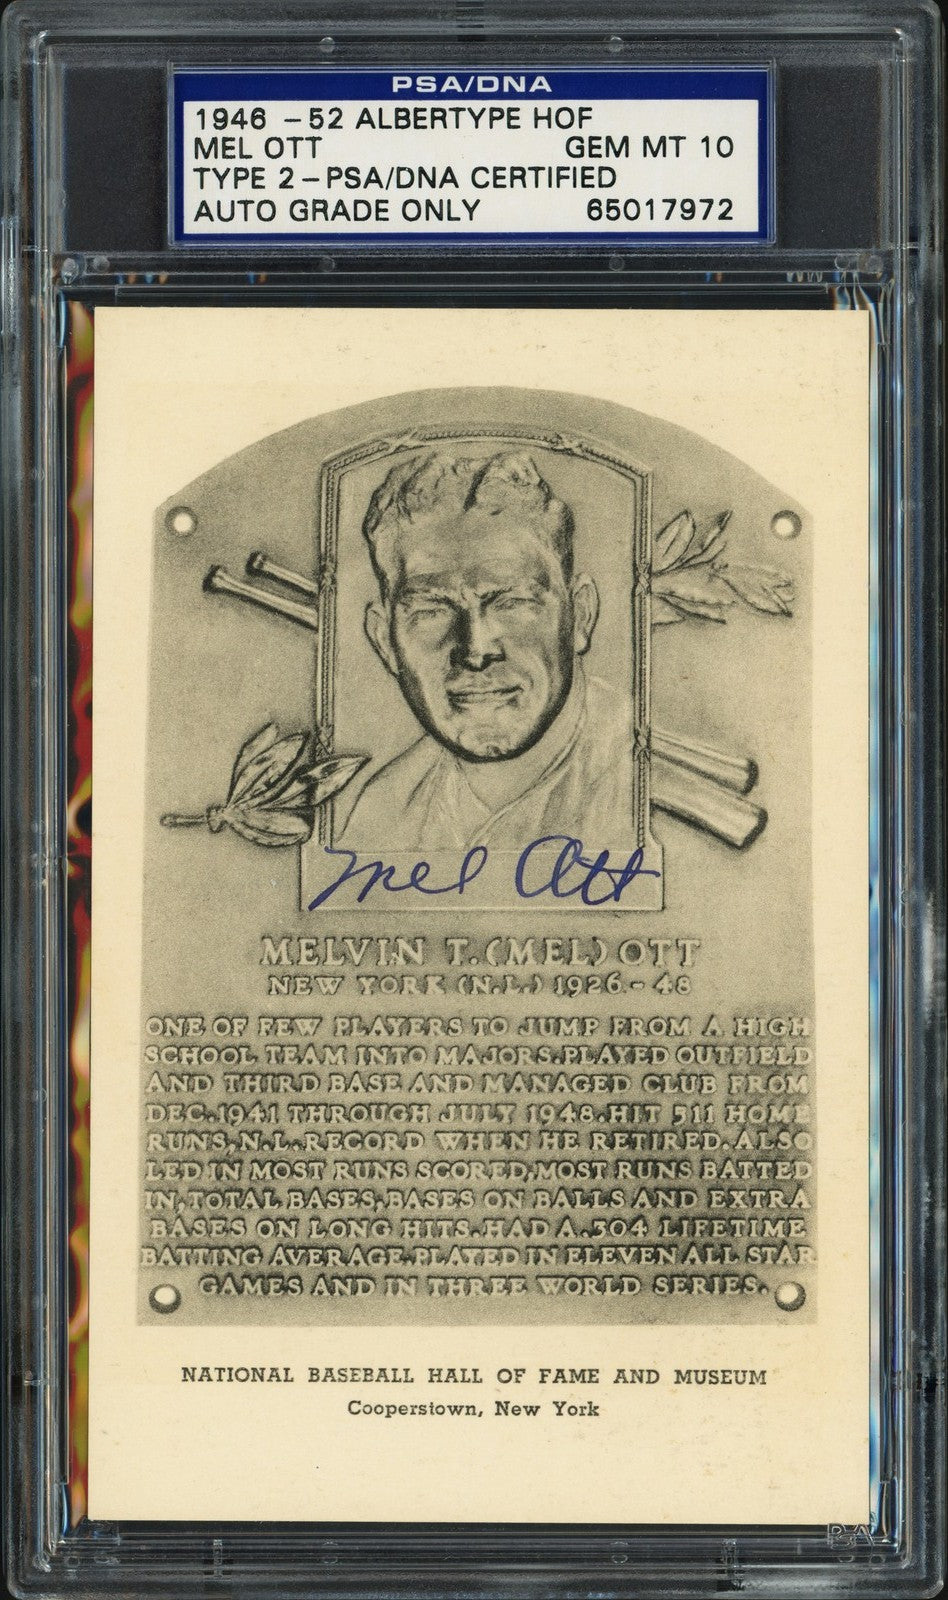 PSA/DNA
1946 - 52 ALBERTYPE HOF
MEL OTT GEM MT 10
TYPE 2 - PSA/DNA CERTIFIED
AUTO GRADE ONLY 65017972
Mel Ott
MELVIN T. (MEL) OTT
NEW YORK (N.L.) 1926 - 48
ONE OF FEW PLAYERS TO JUMP FROM A HIGH
SCHOOL TEAM INTO MAJORS. PLAYED OUTFIELD
AND THIRD BASE AND MANAGED CLUB FROM
DEC. 1941 THROUGH JULY 1948. HIT 511 HOME
RUNS, N.L. RECORD WHEN HE RETIRED. ALSO
LED IN MOST RUNS SCORED, MOST RUNS BATTED
IN, TOTAL BASES, BASES ON BALLS AND EXTRA
BASES ON LONG HITS. HAD A .304 LIFETIME
BATTING AVERAGE. PLAYED IN ELEVEN ALL STAR
GAMES AND IN THREE WORLD SERIES.
NATIONAL BASEBALL HALL OF FAME AND MUSEUM
Cooperstown, New York